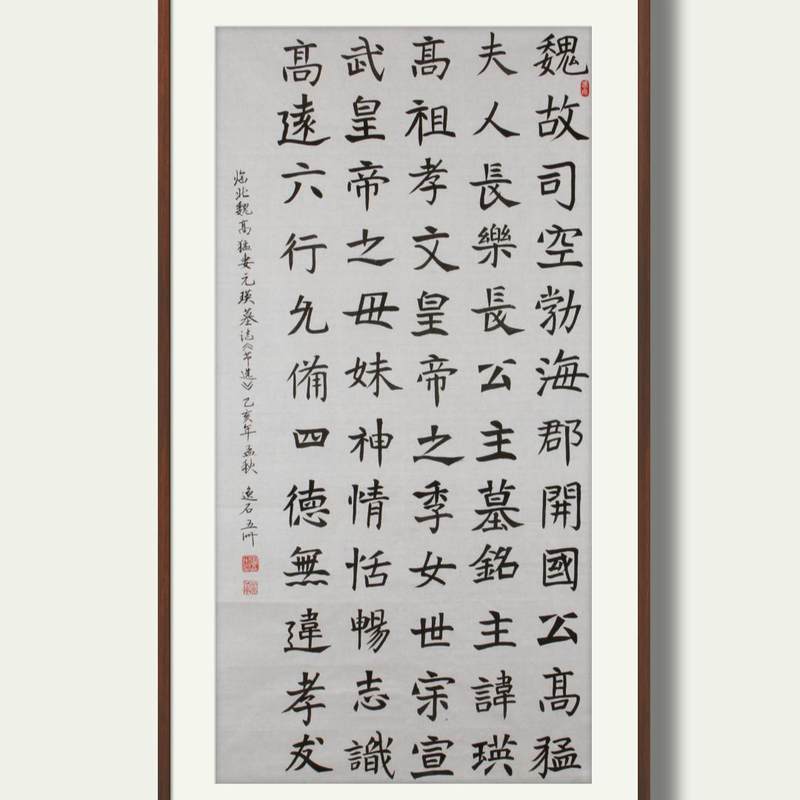 魏故司空勃海郡開國公高猛
夫人長樂長公主墓銘主諱瑛
高祖孝文皇帝之季女世宗宣
武皇帝之母妹神情恬暢志識
高遠六行允備四德無違孝友
临北魏高猛妻元瑛墓誌《节选》乙亥年孟秋逸石五州